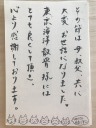 その節は母、叔父、共に
大変、お世話になりました。
東京海洋散骨様には
とても良くして頂き
心より感謝しております。